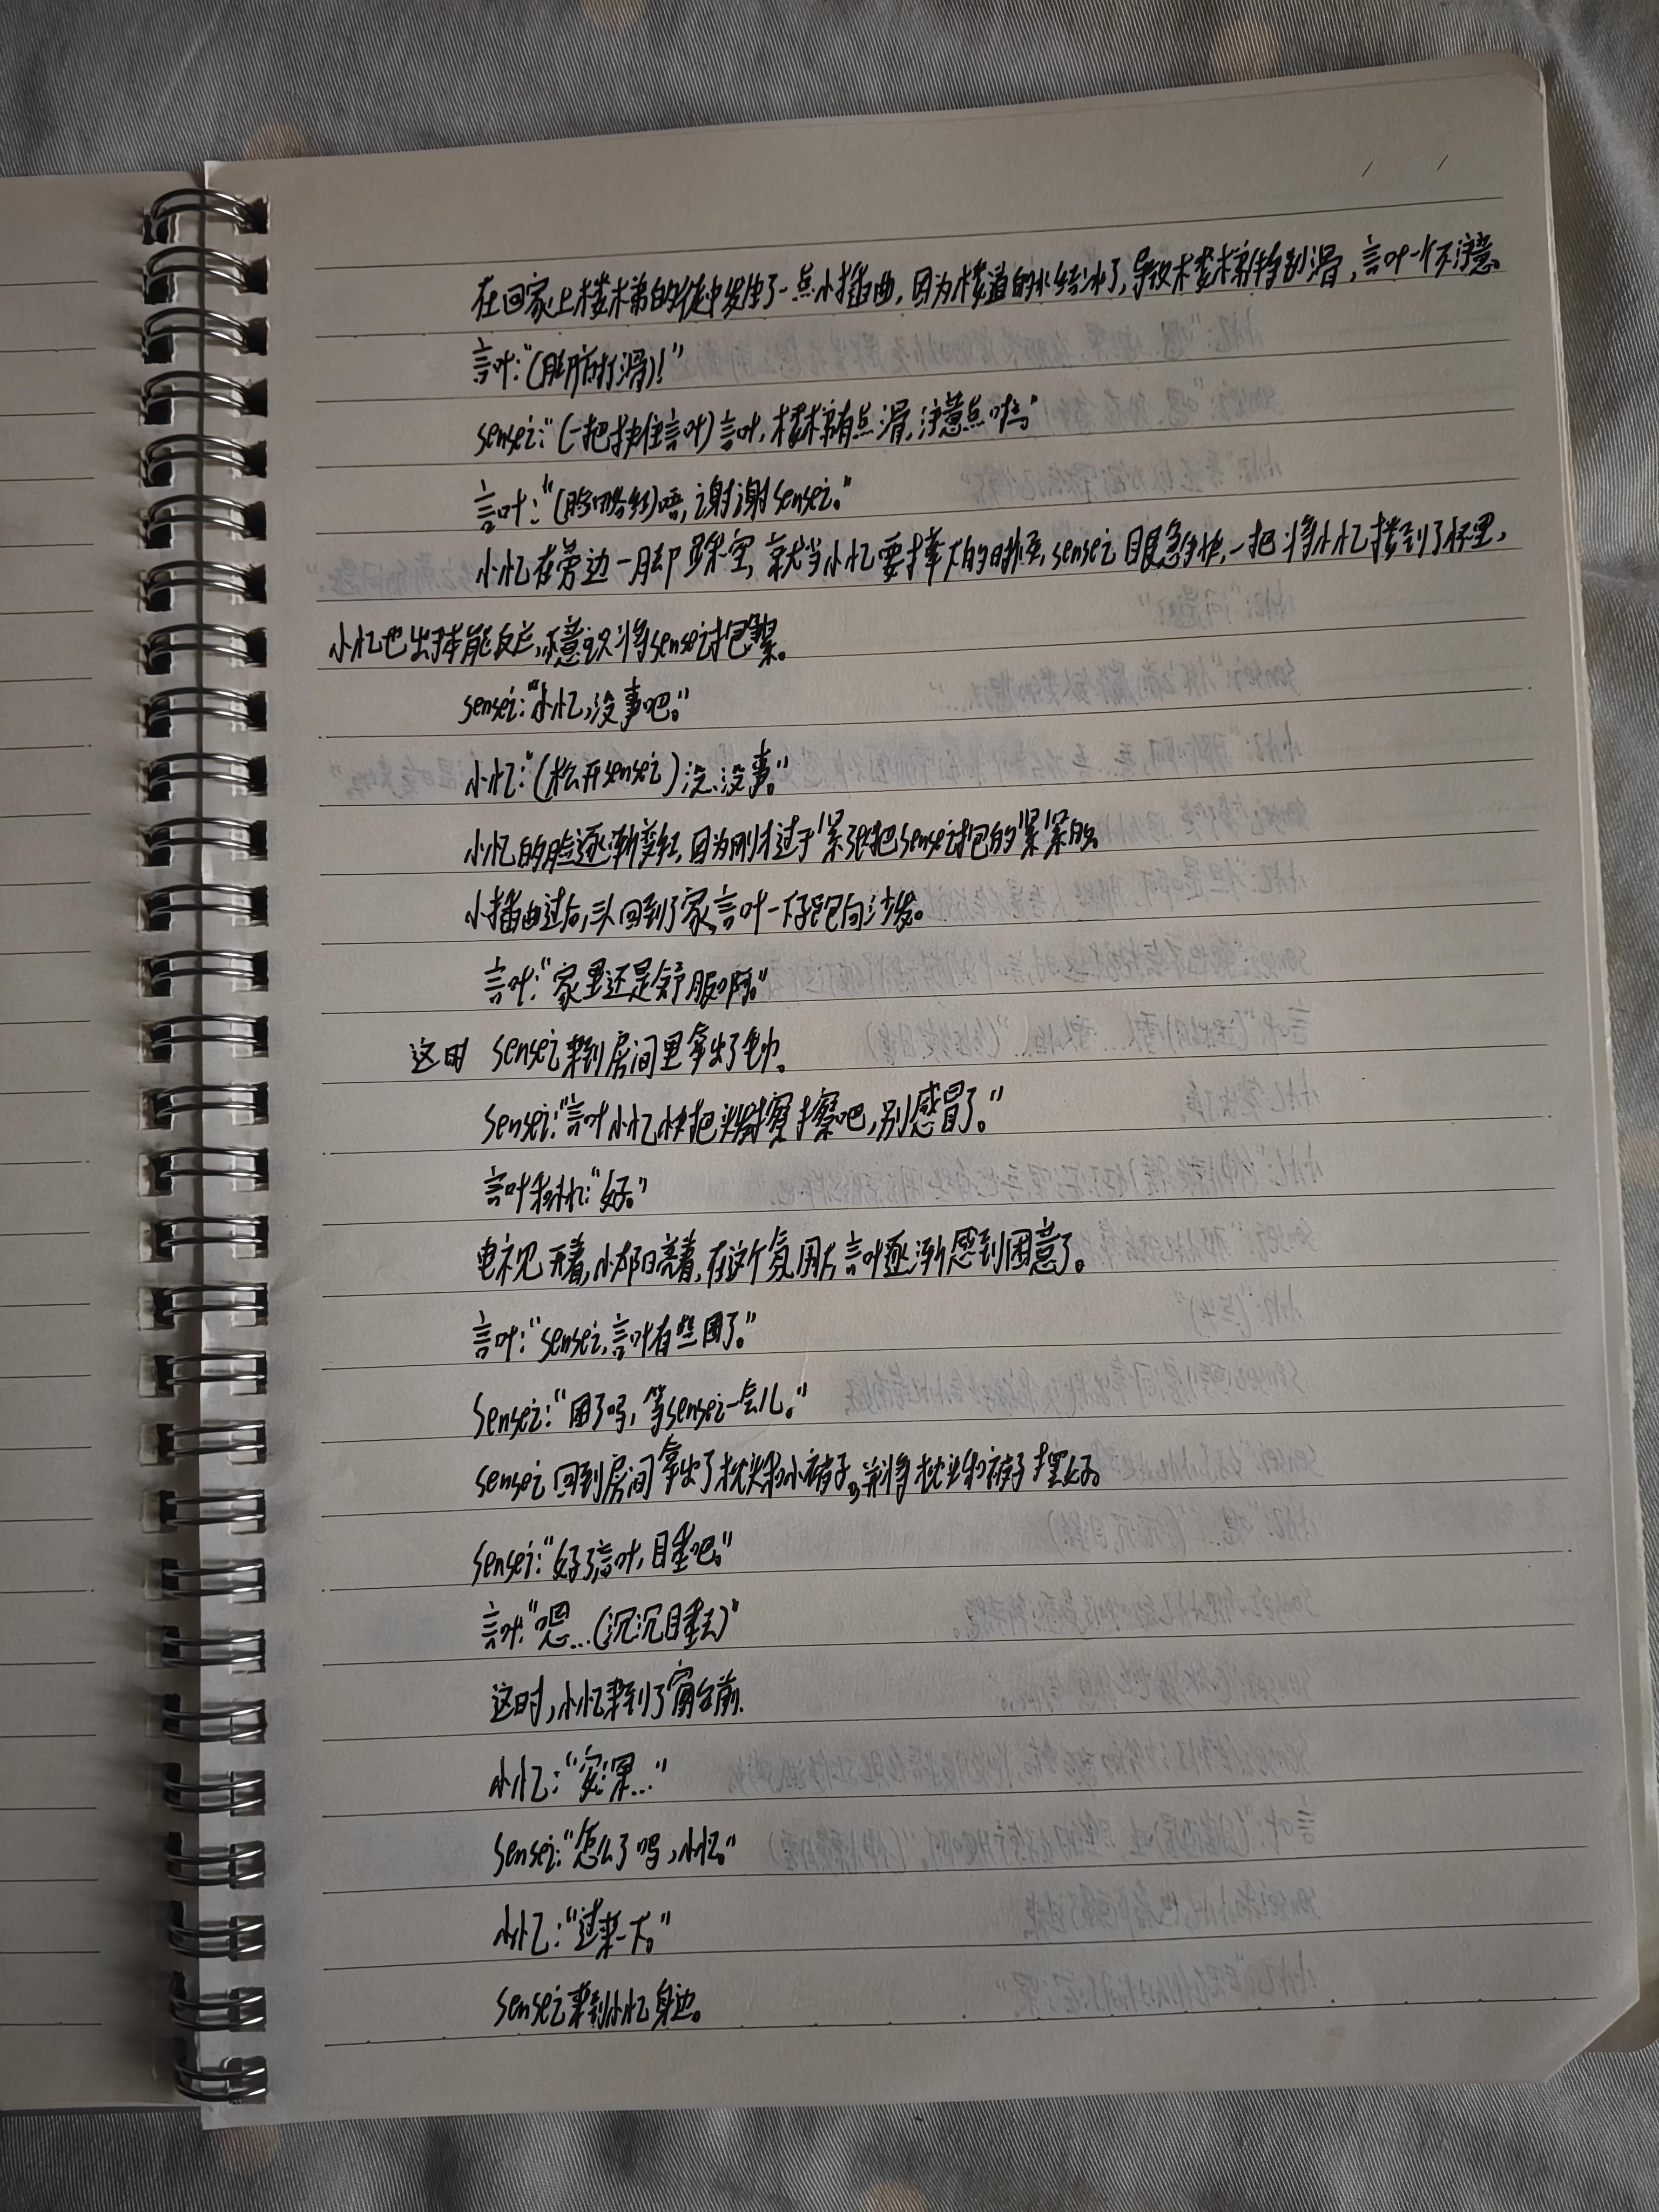 在回家上楼梯的途中发生了一点小插曲,因为楼道的水结冰了,导致楼梯特别滑,言叶一个不注意。
言叶:“(脚底打滑)!”
sensei:“(一把扶住言叶)言叶,楼梯有点滑,注意点哦。”
言叶:“(脸颊微红)唔,谢谢sensei。”
小忆在旁边一脚踩空,就当小忆要摔下的时候,sensei眼急手快,一把将小忆搂到了怀里,
小忆也出于本能反应,下意识将sensei抱紧。
sensei:“小忆,没事吧。”
小忆:“(松开sensei)没、没事。”
小忆的脸逐渐变红,因为刚才过于紧张把sensei抱的紧紧的。
小插曲过后,三人回到了家,言叶一下子跑向沙发。
言叶:“家里还是舒服啊。”
这时 sensei来到房间里拿出了毛巾。
Sensei:“言叶小忆快把头发擦擦吧,别感冒了。”
言叶和小忆:“好。”
电视开着,小灯亮着,在这个氛围下,言叶逐渐感到困意了。
言叶:“sensei,言叶有些困了。”
Sensei:“困了吗,等sensei一会儿。”
sensei回到房间拿出了枕头和小被子,并将枕头和被子摆好。
Sensei:“好了言叶,睡吧。”
言叶:“嗯...(沉沉睡去)”
这时,小忆来到了窗台前.
小忆:“
Sensei:“怎么了吗,小忆。”
小忆:“过来一下。”
Sensei来到小忆身边。